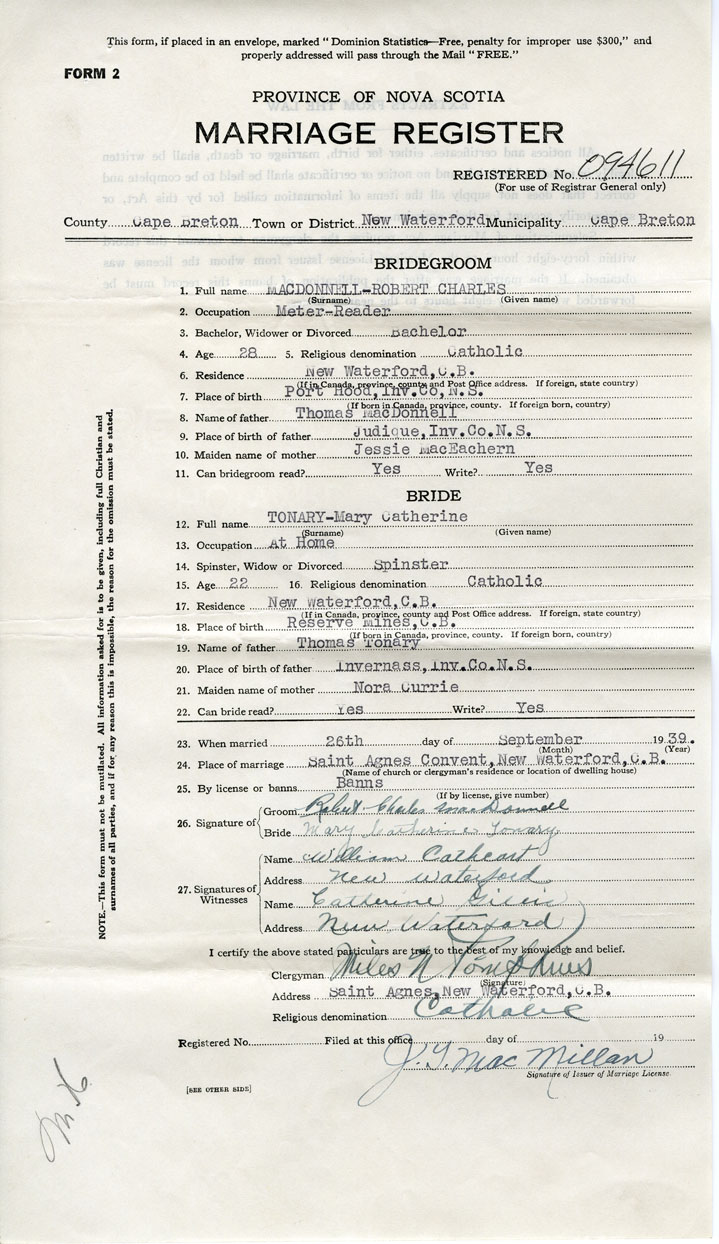 This form, if placed in an envelope, marked "Dominion Statistics—Free, penalty for improper use $300," and
properly addressed will pass through the Mail "FREE."
FORM 2
PROVINCE OF NOVA SCOTIA
MARRIAGE REGISTER
REGISTERED No. 094611
(For use of Registrar General only)
County Cape Breton Town or District New Waterford Municipality Cape Breton
BRIDEGROOM
1. Full name MACDONNELL-ROBERT CHARLES
(Surname) (Given name)
2. Occupation Meter-Reader
3. Bachelor, Widower or Divorced Bachelor
4. Age 28 5. Religious denomination Catholic
6. Residence New Waterford,C.B.
(If in Canada, province, county and Post Office address. If foreign, state country)
7. Place of birth Port Hood,Inv.Co,N.S.
(If born in Canada, province, county. If foreign born, country)
8. Name of father Thomas MacDonnell
9. Place of birth of father Judique,Inv.Co.N.S.
10. Maiden name of mother Jessie MacEachern
11. Can bridegroom read? Yes Write? Yes
BRIDE
12. Full name TONARY-Mary Catherine
(Surname) (Given name)
13. Occupation At Home
14. Spinster, Widow or Divorced Spinster
15. Age 22 16. Religious denomination Catholic
17. Residence New Waterford,C.B.
(If in Canada, province, county and Post Office address. If foreign, state country)
18. Place of birth Reserve Mines,C.B.
(If born in Canada, province, county. If foreign born, country)
19. Name of father Thomas Tonary
20. Place of birth of father Invernass,Inv.Co.N.S.
21. Maiden name of mother Nora Currie
22. Can bride read? Yes Write? Yes
23. When married 26th day of September 1939.
(Month) (Year)
24. Place of marriage Saint Agnes Convent,New Waterford,C.B.
(Name of church or clergyman's residence or location of dwelling house)
25. By license or banns Banns
(If by license, give number)
26. Signature of Groom Robert Charles MacDonnell
Bride Mary Catherine Tonary
27. Signatures of Witnesses Name William Cathcart
Address New Waterford
Name Catherine Gillis
Address New Waterford
I certify the above stated particulars are true to the best of my knowledge and belief.
Clergyman Miles N Tompkins
(Signature)
Address Saint Agnes,New Waterford,C.B.
Religious denomination Catholic
Registered No. Filed at this office day of 19
J. G. MacMillan
Signature of Issuer of Marriage License.
[SEE OTHER SIDE]
NOTE.—This form must not be mutilated. All information asked for is to be given, including full Christian and
surnames of all parties, and if for any reason this is impossible, the reason for the omission must be stated.